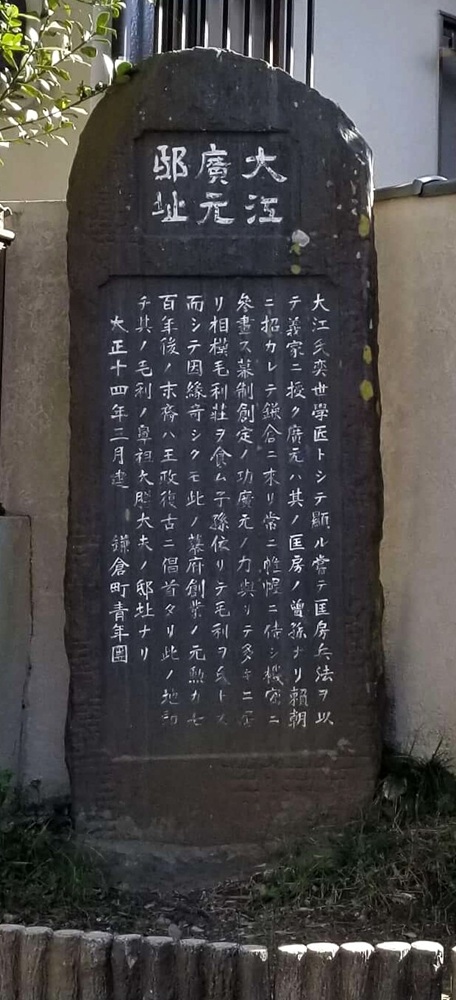 大江
廣元
邸址
大江氏奕世學匠トシテ顯ル嘗テ匡房兵法ヲ以
テ義家ニ授ク廣元ハ其ノ匡房ノ曾孫ナリ賴朝
ニ招カレテ鎌倉ニ來リ常ニ帷幄ニ侍シ機密ニ
參畫ス幕制創定ノ功廣元ノ力與リテ多キニ居
リ相模毛利莊ヲ食ム子孫依リテ毛利ヲ氏トス
而シテ因緣奇シクモ此ノ幕府創業ノ元勲カ七
百年後ノ末裔ハ王政復古ニ倡首タリ此ノ地即
チ其ノ毛利ノ鼻祖大膳大夫ノ邸址ナリ
大正十四年三月建 鎌倉町青年團